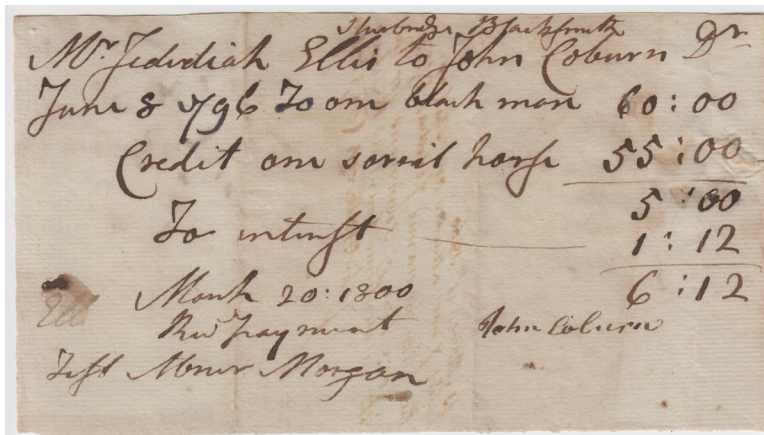 Sturbridge Blacksmith
Mr Jedidiah Ellis to John Coburn Dr
June 8 1796 To one black 60:00
Credit one sorril horse 55:00
5:00
To interest 1:12
6:12
March 20:1800
Rec payment John Coburn
Test Abner Morgan